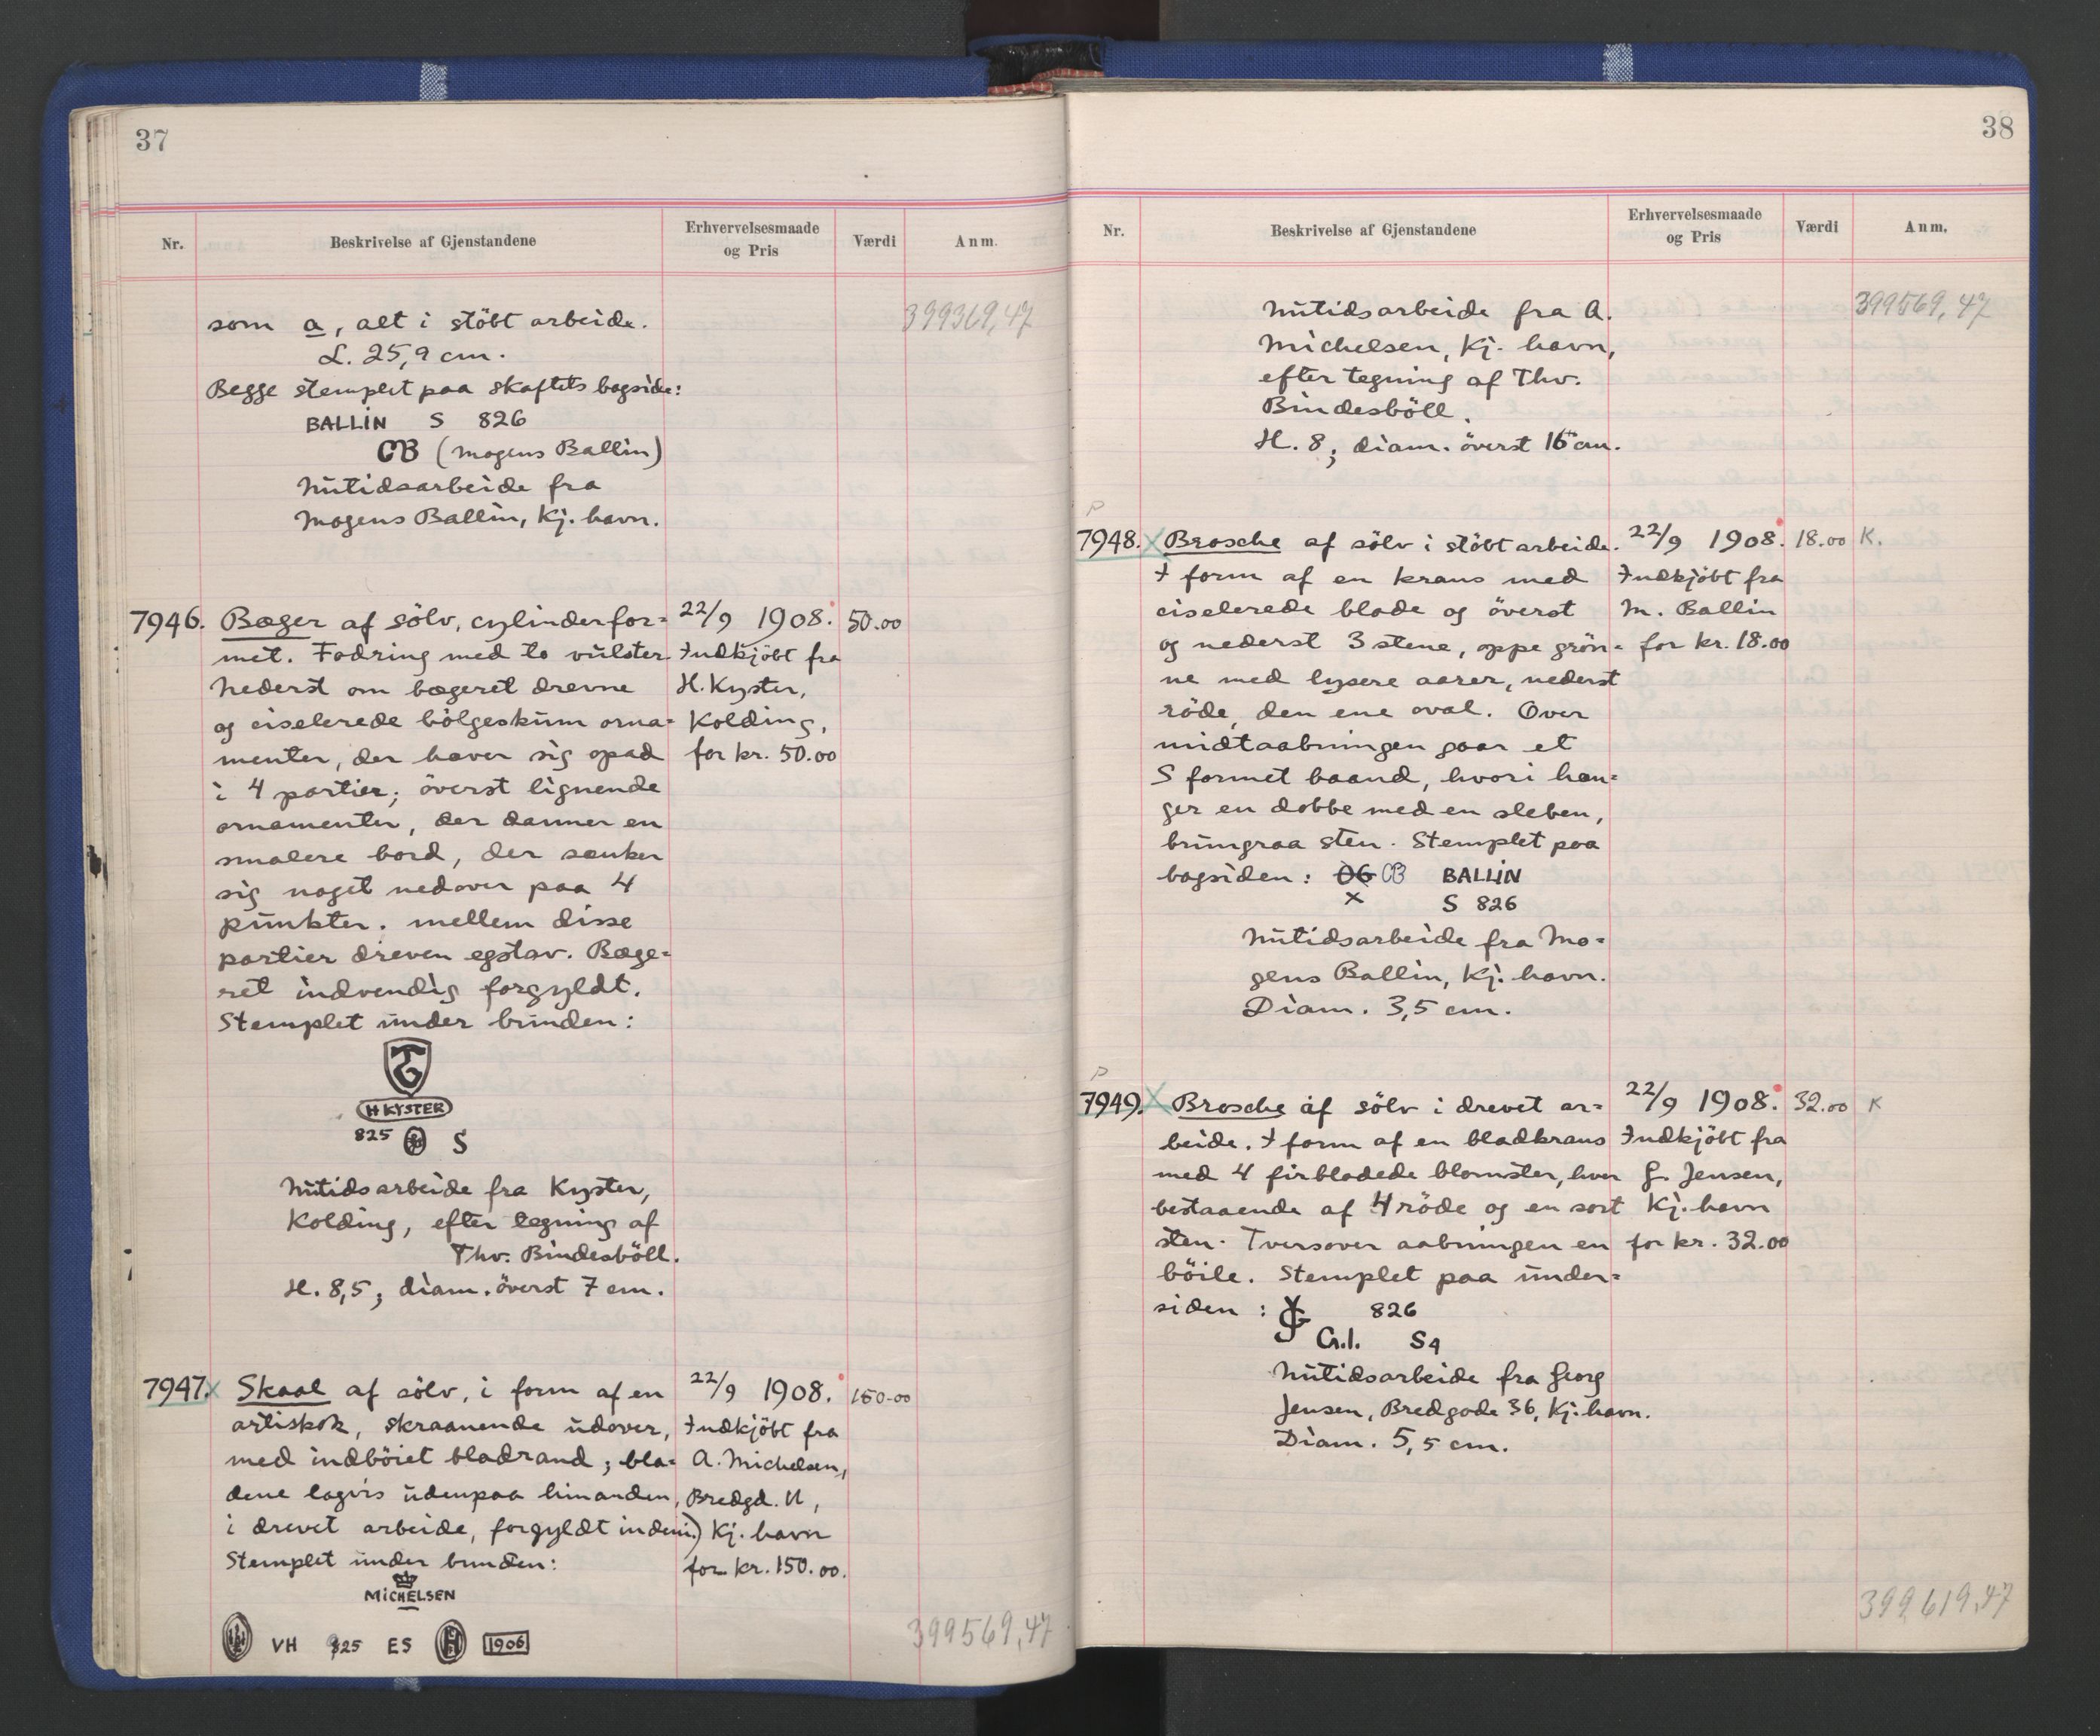 37
Nr.
Beskrivelse af Gjenstandene
Erhvervelsesmaade
og Pris
Værdi
Anm.
399369,47
som a, alt i stöbt arbeide.
L. 25,9 cm.
Begge stemplet paa skaftets bagside:
BALLIN S 826
(Mogens Ballin)
Nutidsarbeide fra
Mogens Ballin, Kj. havn.
7946. Bæger af sölv, cylinderfor=
met. Fodring med to vulster.
Nederst om bægeret drevne
og ciselerede bölgeskum orna=
menter, der hæver sig opad
i 4 partier; överst lignende
ornamenter, der danner en
smalere bord, der sænker
sig noget nedover paa 4
punkter. Mellem disse
partier dreven egstav. Bæge=
ret indvendig forgyldt.
Stemplet under bunden:
H KYSTER
825 S
Nutidsarbeide fra Kyster,
Kolding, efter tegning af
Thv. Bindesböll.
H. 8,5; diam. överst 7 cm.
22/9 1908.
Indkjöbt fra
H. Kyster,
Kolding,
for kr. 50.00
50.00
7947. x Skaal af sölv, i form af en
artiskok, skraanende udover,
med indböiet bladrand; bla=
dene lagvis udenpaa hinanden,
i drevet arbeide, forgyldt indeni.)
Stemplet under bunden:
MICHELSEN
VH 825 ES 1906
22/9 1908.
Indkjöbt fra
A. Michelsen,
Bredgd. 11,
Kj. havn
for kr. 150.00.
150.00
399569,47
38
Nr.
Beskrivelse af Gjenstandene
Erhvervelsesmaade
og Pris
Værdi
Anm.
399569,47
Nutidsarbeide fra A.
Michelsen, Kj. havn,
efter tegning af Thv.
Bindesböll.
H. 8; diam. överst 16 cm.
P
7948. x Brosche af sölv i stöbt arbeide.
I form af en krans med
ciselerede blade og överst
og nederst 3 stene, oppe grön=
ne med lysere aarer, nederst
röde, den ene oval. Over
midtaabningen gaar et
S formet baand, hvori hæn=
ger en dobbe med en sleben,
brungraa sten. Stemplet paa
bagsiden: BALLIN
x S 826
Nutidsarbeide fra Mo=
gens Ballin, Kj. havn.
Diam. 3,5 cm.
22/9 1908.
Indkjöbt fra
M. Ballin
for kr. 18.00
18.00
K.
P
7949. x Brosche af sölv i drevet ar=
beide. I form af en bladkrans
med 4 firbladede blomster, hver
bestaaende af 4 röde og en sort
sten. Tversover aabningen en
böile. Stemplet paa under=
siden: 826
G.I. S9
Nutidsarbeide fra Georg
Jensen, Bredgade 36, Kj. havn.
Diam. 5,5 cm.
22/9 1908.
Indkjöbt fra
G. Jensen,
Kj. havn
for kr. 32.00
32.00
K
399619,47